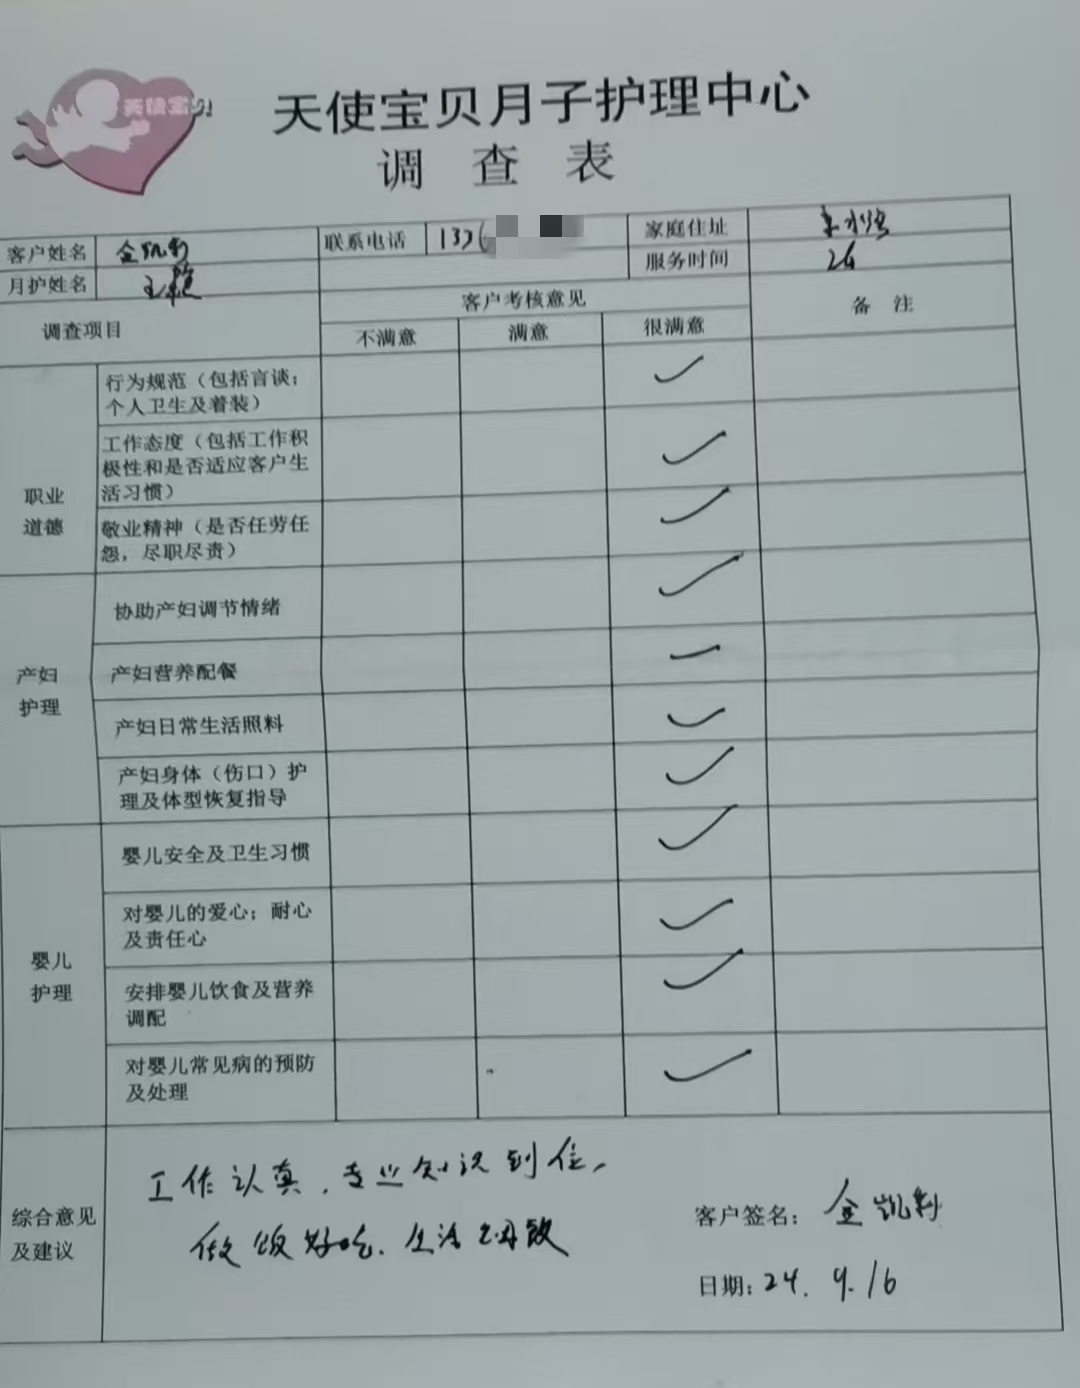 天使宝贝
天使宝贝月子护理中心
调 查 表
客户姓名 金凯利 联系电话 133 家庭住址
月护姓名 王 服务时间 26
调查项目 客户考核意见 备 注
不满意 满意 很满意
职业
道德
行为规范（包括言谈；
个人卫生及着装） ✓
工作态度（包括工作积
极性和是否适应客户生
活习惯） ✓
敬业精神（是否任劳任
怨，尽职尽责） ✓
产妇
护理
协助产妇调节情绪 ✓
产妇营养配餐 ✓
产妇日常生活照料 ✓
产妇身体（伤口）护
理及体型恢复指导 ✓
婴儿
护理
婴儿安全及卫生习惯 ✓
对婴儿的爱心；耐心
及责任心 ✓
安排婴儿饮食及营养
调配 ✓
对婴儿常见病的预防
及处理 ✓
综合意见
及建议
工作认真，专业知识到位，
做饭好吃、生活
客户签名：金凯利
日期：24. 9. 16